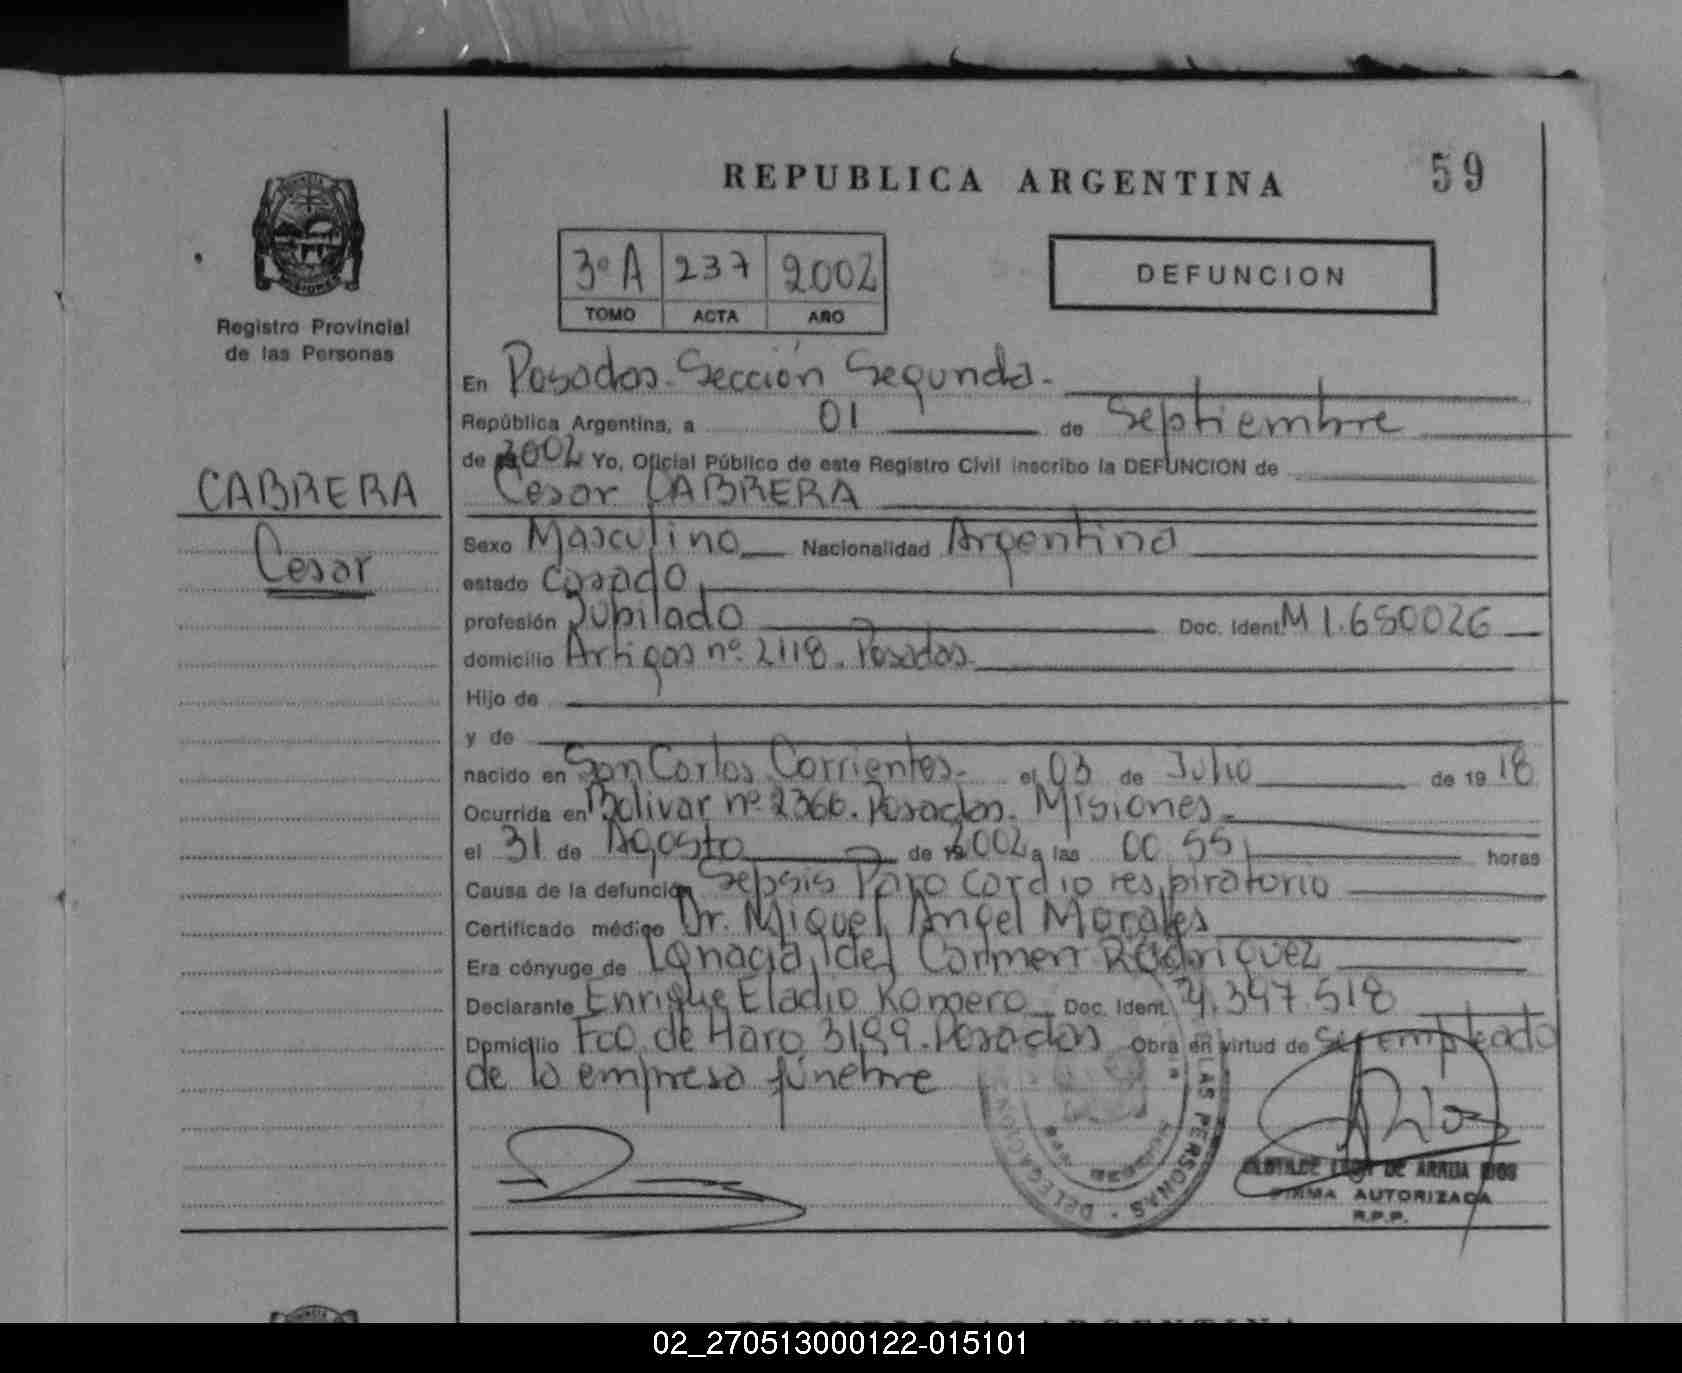 REPUBLICA ARGENTINA
59
3º A 237 2002
TOMO ACTA AÑO
DEFUNCION
Registro Provincial
de las Personas
CABRERA
Cesar
En Posadas. Sección Segunda.
República Argentina, a 01 de Septiembre
de 2002 Yo, Oficial Público de este Registro Civil inscribo la DEFUNCION de
Cesar CABRERA
Sexo Masculino Nacionalidad Argentina
estado Casado
profesión Jubilado Doc. Ident. M 1.650026
domicilio Artigas nº 2118. Posadas.
Hijo de
y de
nacido en San Carlos Corrientes. el 03 de Julio de 19 18
Ocurrida en Bolivar nº 2366. Posadas. Misiones.
el 31 de Agosto de 2002 a las 00,55 horas
Causa de la defunción Sepsis Paro cardio respiratorio
Certificado médico Dr. Miguel Angel Morales
Era cónyuge de Ignacia del Carmen Rodriguez
Declarante Enrique Eladio Romero Doc. Ident. 4.347.518
Domicilio Fco. de Haro 3199. Posadas Obra en virtud de ser empleado
de la empresa fúnebre
LAS PERSONAS - DELEGACION
DE ARRUA RIOS
FIRMA AUTORIZADA
R.P.P.
REPUBLICA ARGENTINA
02_270513000122-015101